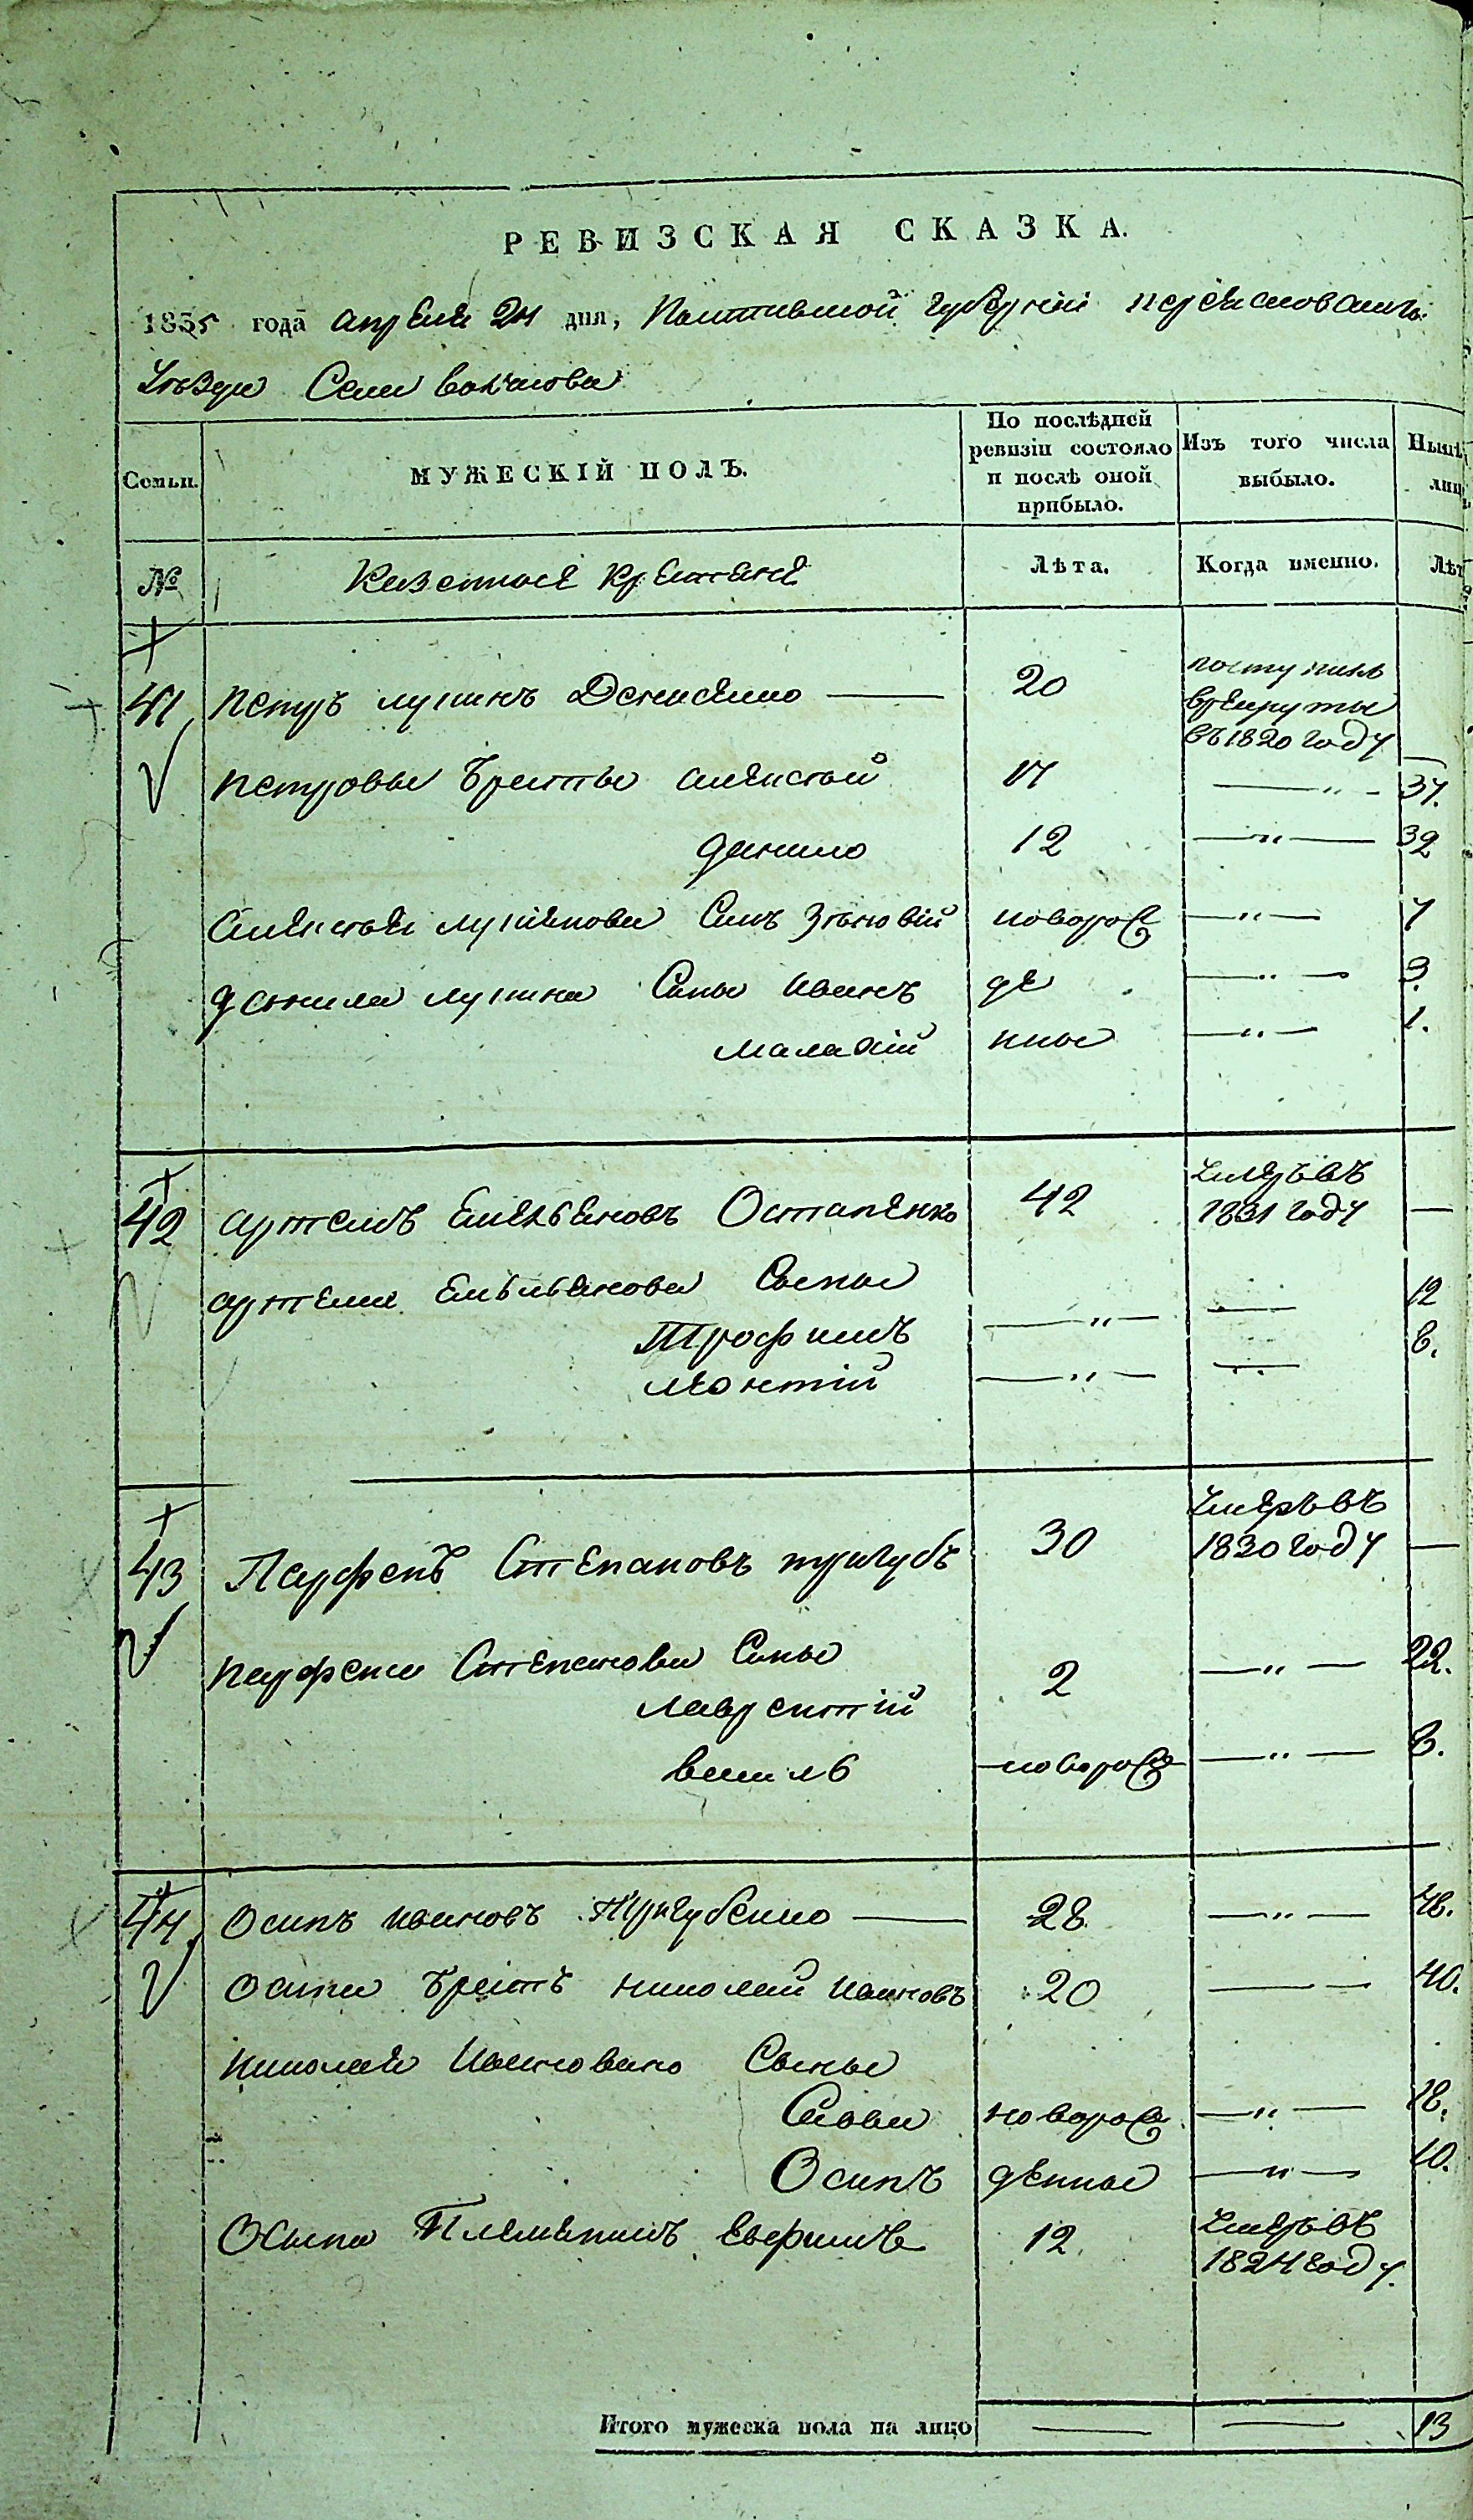 РЕВИЗСКАЯ СКАЗКА.
1835 года апреля 24 дня, Полтавской губернии переяславского
Уезда Села
Семьи.
МУЖЕСКІЙ ПОЛЪ.
По послѣдней ревизіи состояло и послѣ оной прибыло.
Изъ того числа выбыло.
Нынѣ лиц
№
Казенные крестяне
Лѣта.
Когда именно.
Лѣт
41 Петръ лукинъ Денисенко 20 поступилъ
врекруты
въ 1820 году
Петровы братья алексѣй 17 37.
данило 12 32
алексѣя лукянова Синъ Зѣновій новорож 7
данила лукина Сины иванъ де 3.
малахій нны 1.
42 артемъ Емельяновъ Остапенко 42 Умеръ въ
1831 году
артема Емельянова Сыны
Трофимъ 12
леонтій 6.
43 Парфенъ Степановъ тригубъ 30 Умеръ въ
1830 году
парфена Степанова Сины
лаврентій 2 22.
василь новорож 8.
44. Осипъ ивановъ Тригубенко 28. 48.
Осипа братъ николай ивановъ 20 40.
николая Ивановано Сыны
Савва новорож 18.
Осипъ денные 10.
Осипа Племяникъ 12 Умеръ въ
1824 году.
Итого мужеска пола на лицо 13